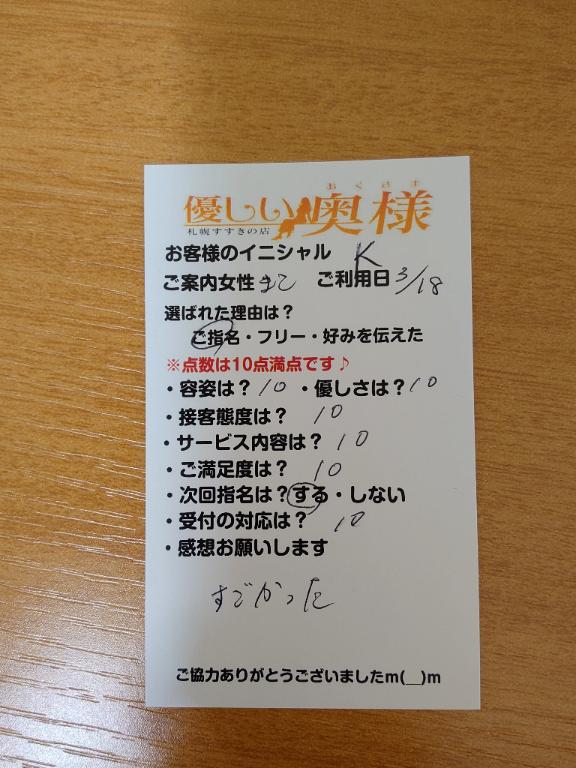 おくさま
優しい奥様
札幌すすきの店
お客様のイニシャル K
ご案内女性 まこ ご利用日 3/18
選ばれた理由は？
ご指名・フリー・好みを伝えた
※点数は10点満点です♪
・容姿は？ 10 ・優しさは？ 10
・接客態度は？ 10
・サービス内容は？ 10
・ご満足度は？ 10
・次回指名は？する・しない
・受付の対応は？ 10
・感想お願いします
すごかった
ご協力ありがとうございましたm(__)m